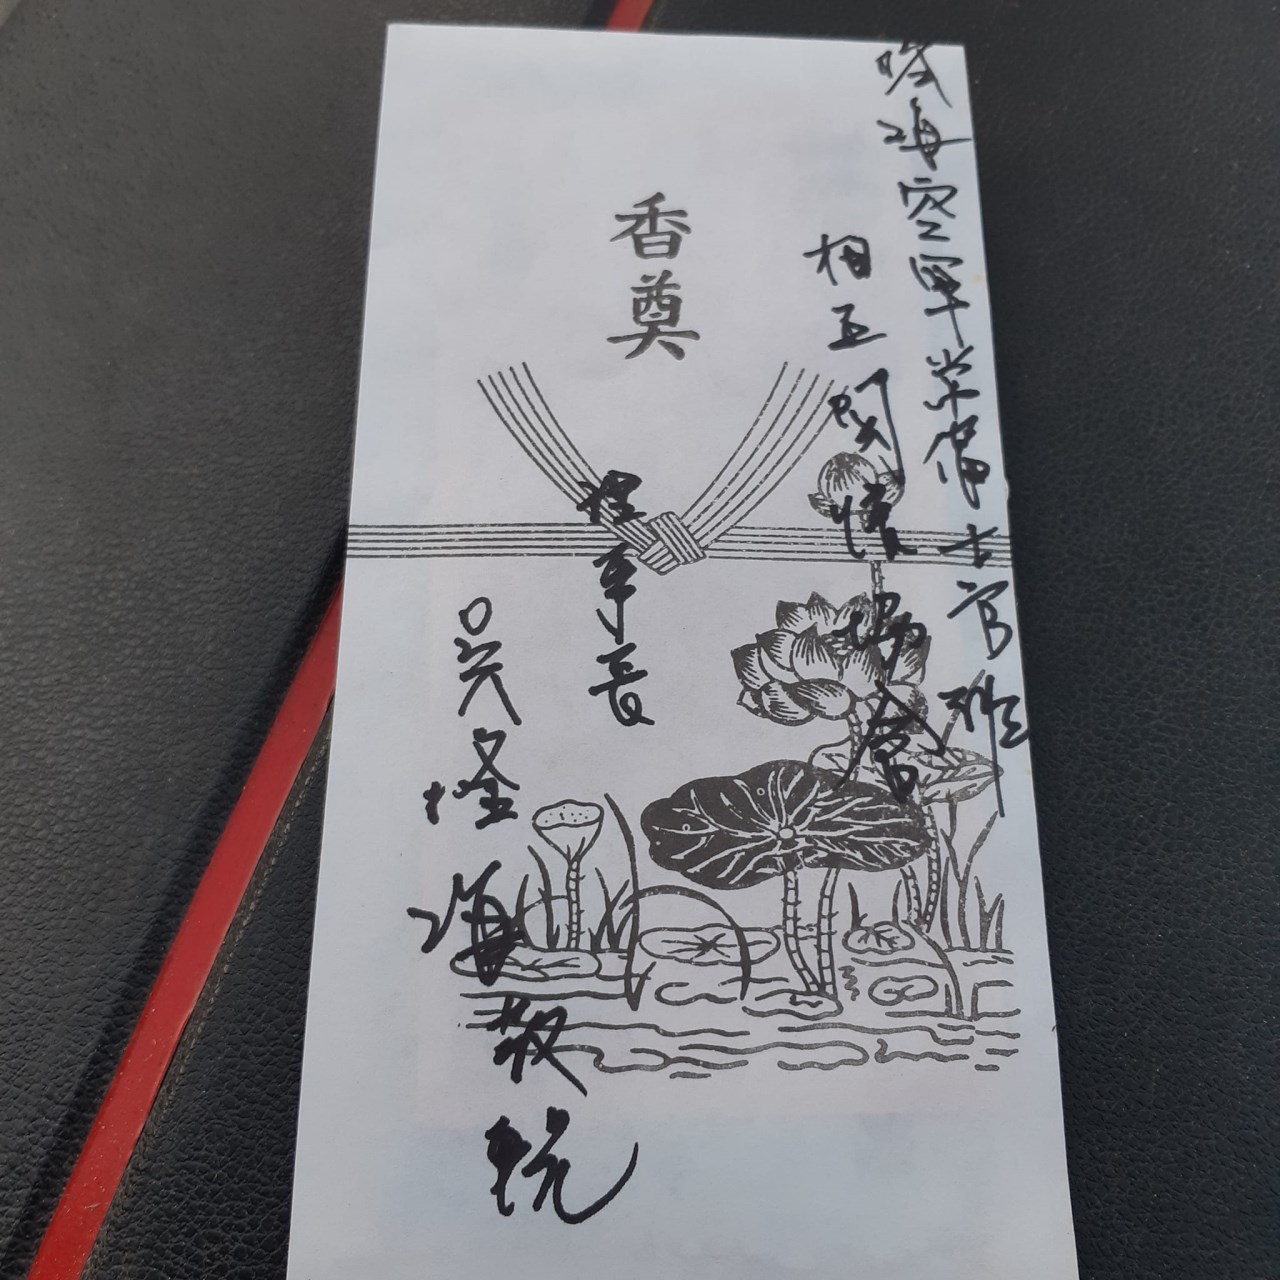 陸海空軍常備士官班
相互關懷協會
香奠
理事長
吳海敬輓